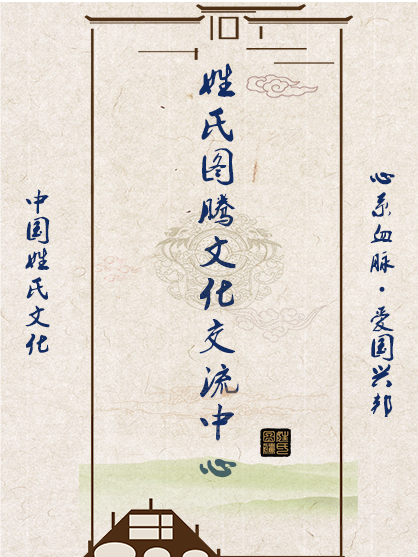 心系血脉·爱国兴邦
姓氏图腾文化交流中心
中国姓氏文化
姓氏图腾